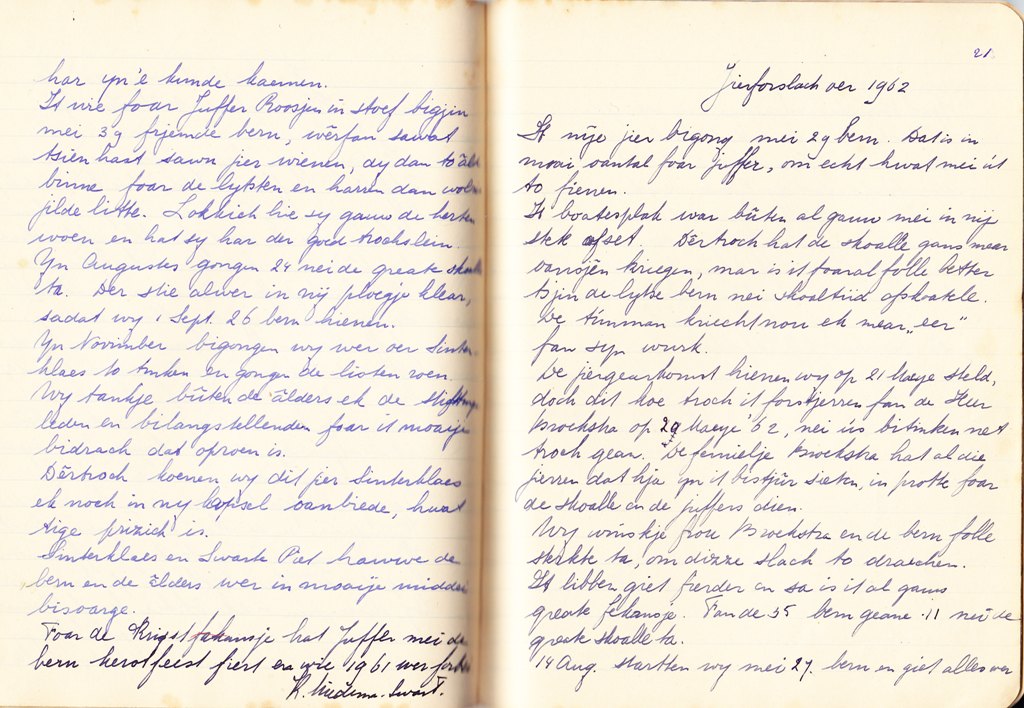 har yn'e kunde kaemen.
It wie foar Juffer Roosjen in stoef bigjin
mei 39 frjemde bern, wêrfan sawat
tsien haast sawn jier wienen, dy dan to âld
binne foar de lytsten en harren dan wol
jilde litte. Lokkich hie sy gauw de herten
woen en hat sy har der goed trochslein.
Yn Augustus gongen 24 nei de greate skoalle
ta. Der stie alwer in nij ploegje klear,
sadat wy 1 Sept. 26 bern hienen.
Yn Novimber bigongen wy wer oer Sinter-
klaes to tinken en gongen de listen roen.
Wy tankje bûten de âlders ek de stiftings
leden en bilangstellenden foar it moaije
bidrach dat oproen is.
Dêrtroch koenen wy dit jier Sinterklaes
ek noch in ny kapsel oanbiede, hwat
tige prizich is.
Sinterklaes en Swarte Piet hawwe de
bern en de âlders wer in moaije middei
bisoarge.
Foar de Krystfakansje hat Juffer mei de
bern kerstfeest fierd en wie 1961 wer
K. Miedema-Swart.
21
Jierforslach oer 1962
It nije jier bigong mei 29 bern. Dat is in
moai oantal foar jiffer, om echt hwat mei út
to fieren.
It boatersplak war bûten al gauw mei in nij
stek ofset. Dêrtroch hat de skoalle gans mear
oansjen kriegen, mar is it foaral folle better
tsjin de lytse bern nei skoaltiid ofskoatele.
De túnman kriecht nou ek mear "eer"
fan syn wurk.
De jiergearkomst hienen wy op 21 Maeye steld,
doch dit koe troch it forstjerren fan de Heer
Broekstra op 29 Maeye '62, nei ús bitinken net
troch gean. De femielje Broekstra hat al die
jierren dat hja yn it bistjûr sieten, in protte foar
de skoalle en de juffers dien.
Wy winskje frou Broekstra en de bern folle
sterkte ta, om dizze slach to draechen.
It libben giet fierder en sa is it al gauw
greate fekansje. Fan de 35 bern geane 11 nei de
greate skoalle ta.
14 Aug. startten wy mei 27 bern en giet alles wer